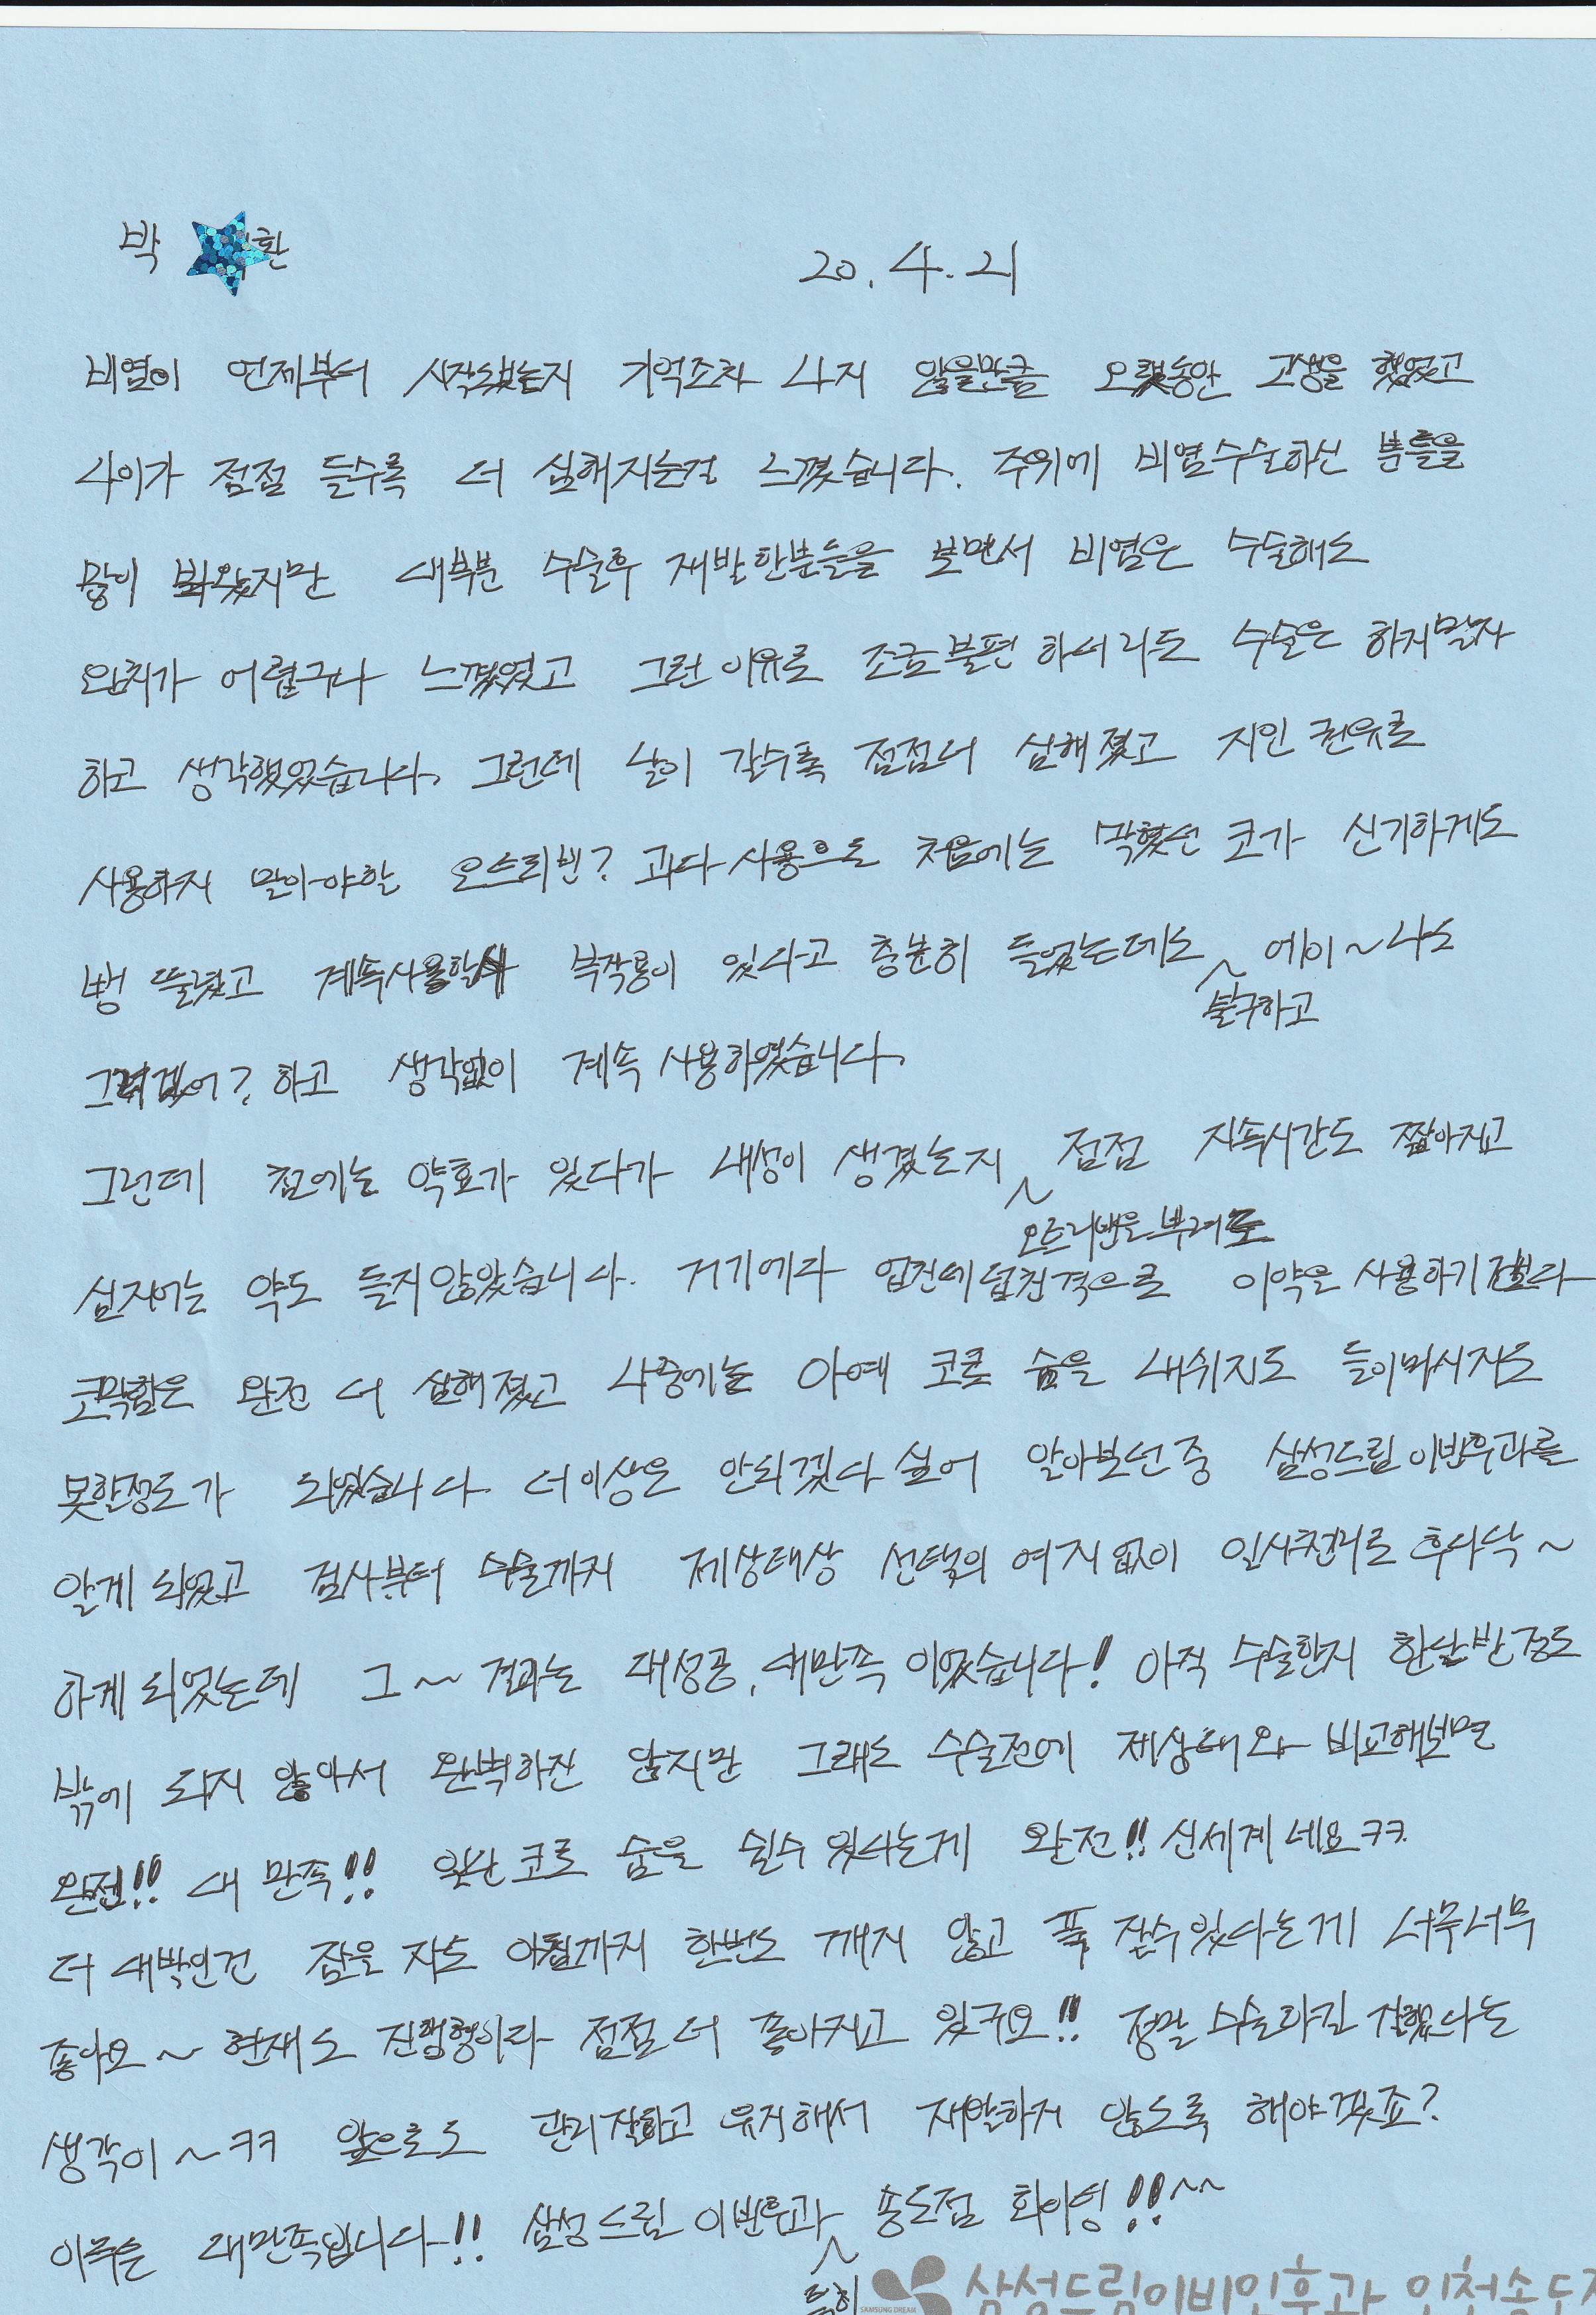 박 환
20. 4. 21
비염이 언제부터 시작됐는지 기억조차 나지 않을만큼 오랫동안 고생을 했었고
나이가 점점 들수록 더 심해지는걸 느꼈습니다. 주위에 비염수술하신 분들을
많이 봐왔지만 대부분 수술후 재발한분들을 보면서 비염은 수술해도
완치가 어렵구나 느꼈었고 그런 이유로 조금 불편 하더라도 수술은 하지말자
하고 생각했었습니다. 그런데 날이 갈수록 점점더 심해졌고 지인 권유로
사용하지 말아야할 오트리빈? 과다 사용으로 처음에는 막혔던 코가 신기하게도
뻥 뚫렸고 계속사용할시 부작용이 있다고 충분히 들었는데도 에이~ 나도
불구하고
그러겠어? 하고 생각없이 계속 사용하였습니다.
그런데 첨에는 약효가 있다가 내성이 생겼는지 점점 지속시간도 짧아지고
오트리빈을 뿌려도
심지어는 약도 듣지않았습니다. 거기에다 엎친데덥친격으로 이약을 사용하기전보다
코막힘은 완전 더 심해졌고 나중에는 아예 코로 숨을 내쉬지도 들이마시지도
못한정도가 되었습니다. 더이상은 안되겠다 싶어 알아보던중 삼성드림이비인후과를
알게 되었고 검사부터 수술까지 제상태상 선택의 여지없이 일사천리로 후다닥~
하게 되었는데 그~ 결과는 대성공, 대만족 이었습니다! 아직 수술한지 한달반정도
밖에 되지 않아서 완벽하진 않지만 그래도 수술전에 제상태와 비교해보면
완전!! 대 만족!! 일단 코로 숨을 쉴수 있다는게 완전!! 신세계네요 ㅋㅋ
더 대박인건 잠을 자도 아침까지 한번도 깨지 않고 푹 잘수있다는게 너무너무
좋아요~ 현재도 진행형이라 점점 더 좋아지고 있구요!! 정말 수술하길 잘했다는
생각이~ ㅋㅋ 앞으로도 관리잘하고 유지해서 재발하지 않도록 해야겠죠?
이루는 대만족입니다!! 삼성드림 이비인후과 송도점 화이팅!!~~
특히
삼성드림이비인후과 인천송도점
SAMSUNG DREAM